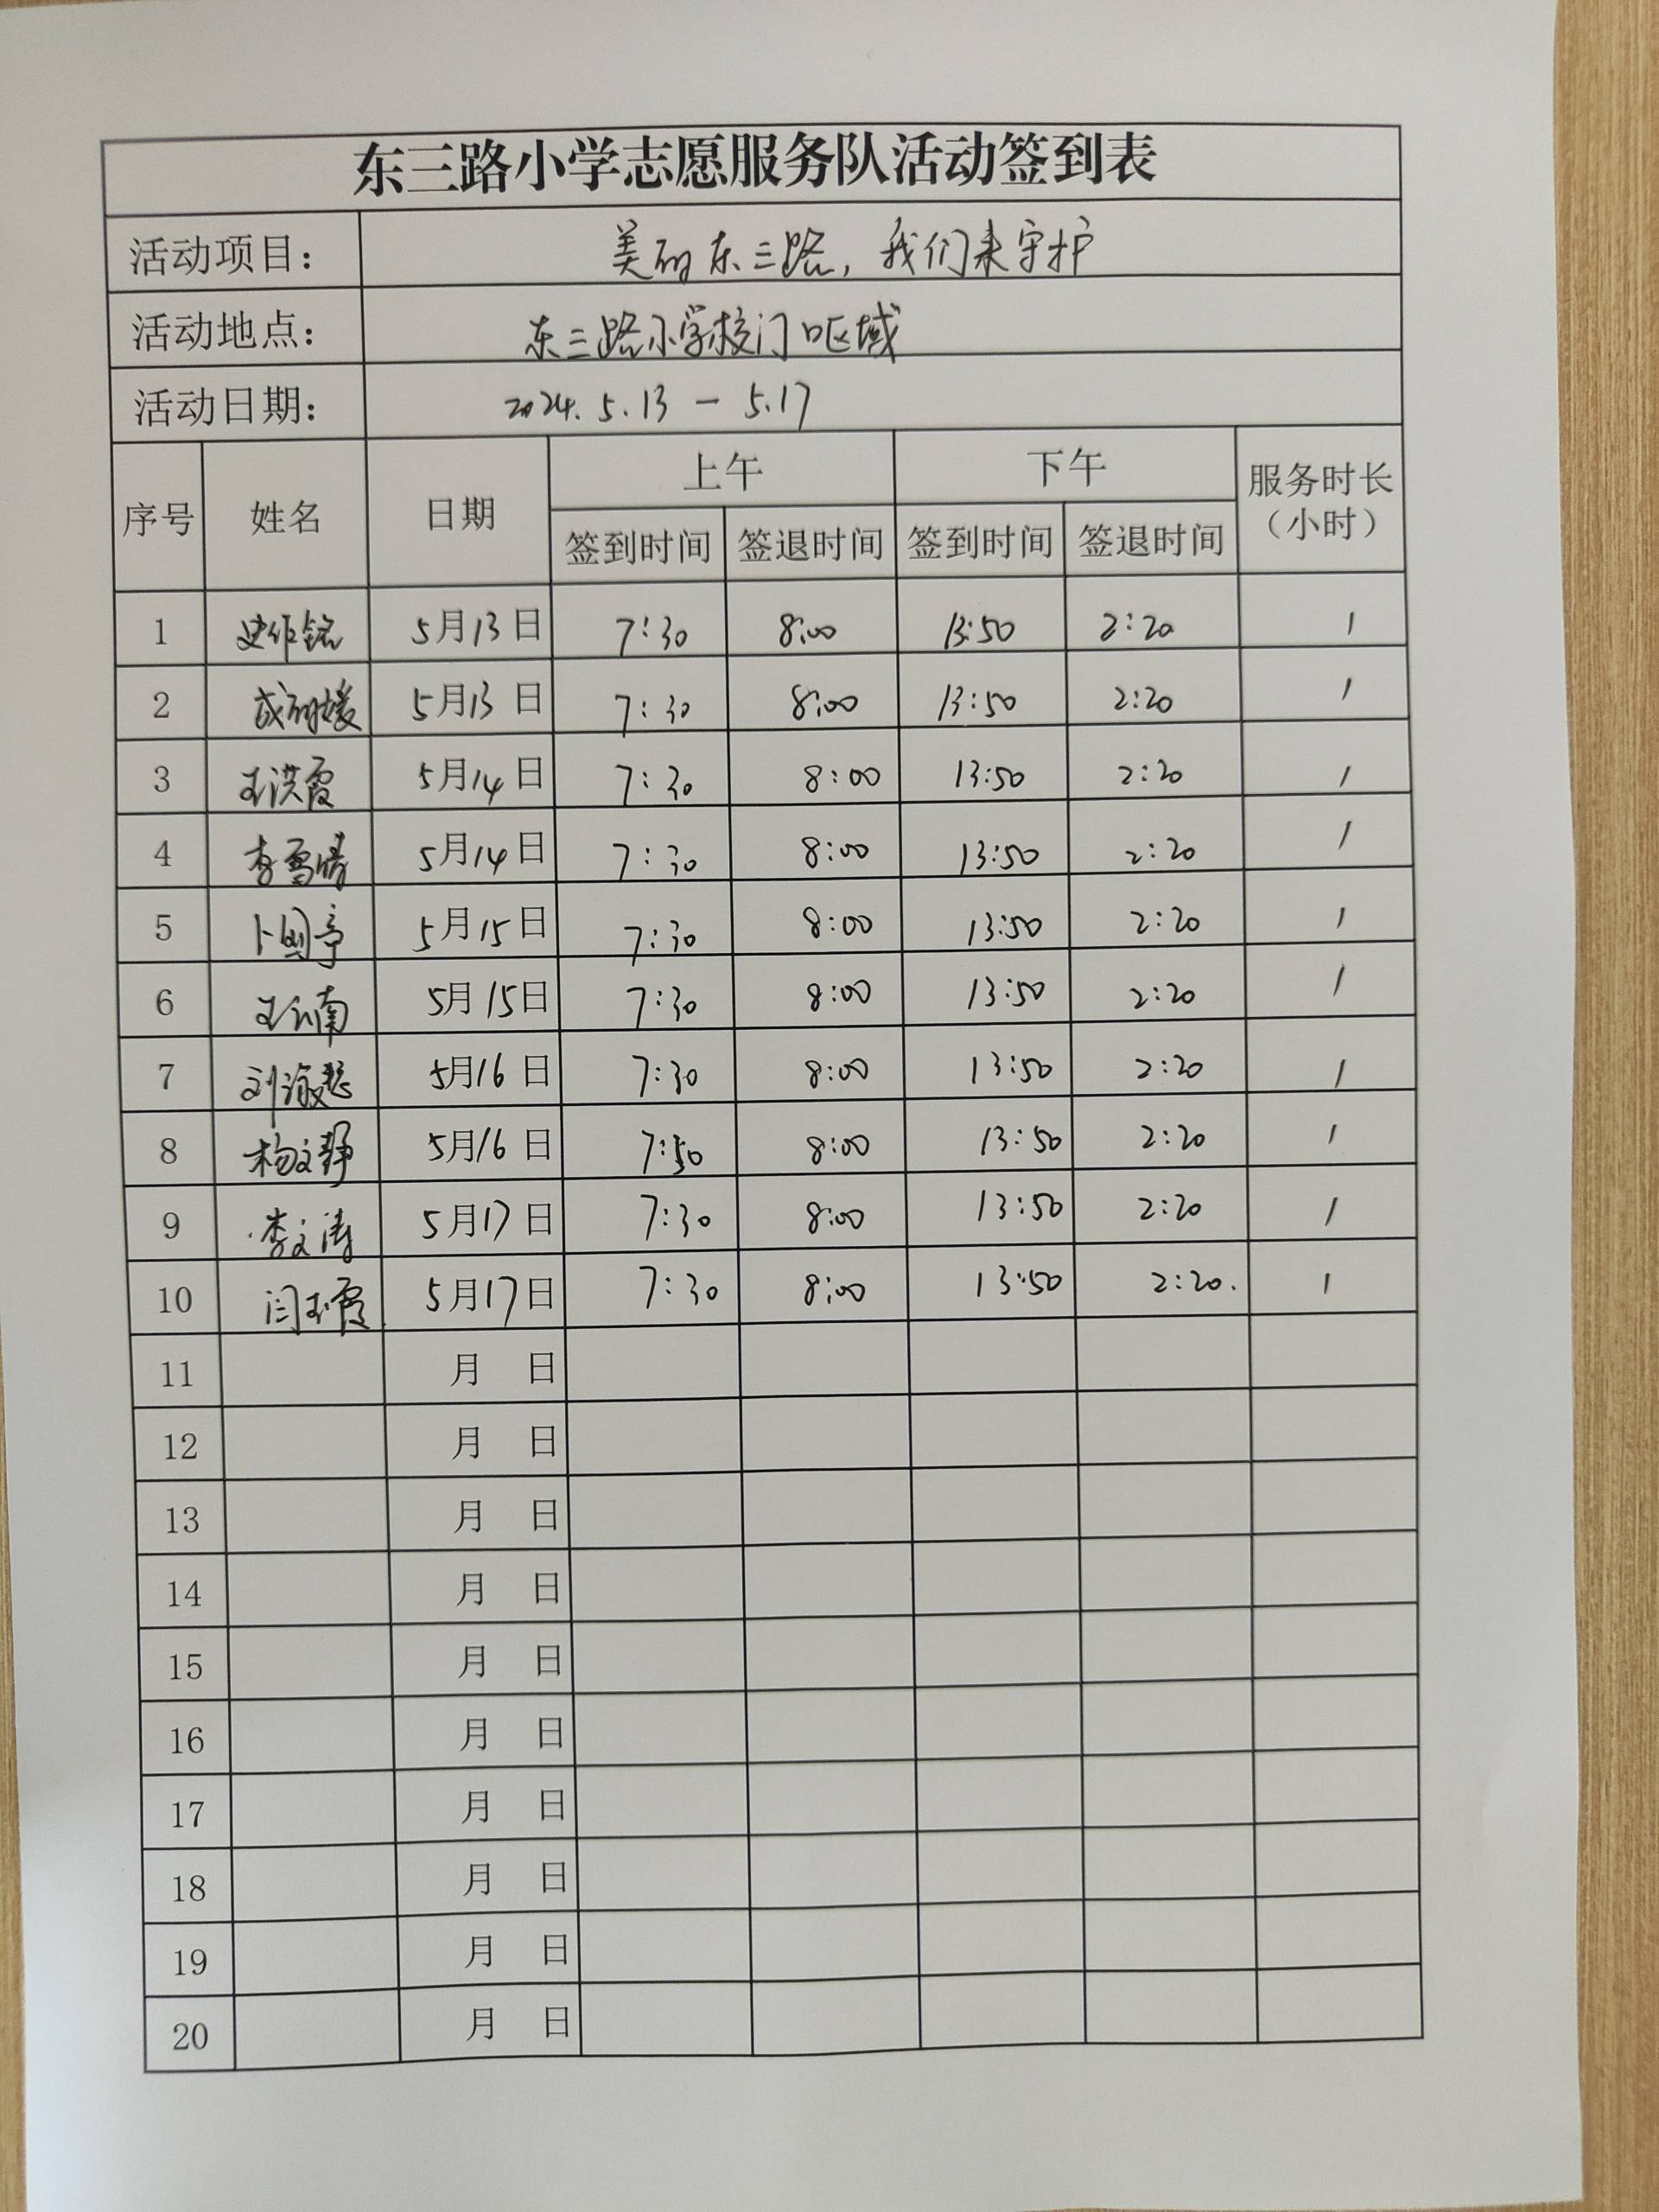 东三路小学志愿服务队活动签到表
活动项目： 美丽东三路，我们来守护
活动地点： 东三路小学校门口区域
活动日期： 2024.5.13 — 5.17
序号 姓名 日期 上午 下午 服务时长（小时）
签到时间 签退时间 签到时间 签退时间
1 史作铭 5月13日 7:30 8:00 13:50 2:20 1
2 成丽媛 5月13日 7:30 8:00 13:50 2:20 1
3 王洪霞 5月14日 7:30 8:00 13:50 2:20 1
4 李雪倩 5月14日 7:30 8:00 13:50 2:20 1
5 卜国亭 5月15日 7:30 8:00 13:50 2:20 1
6 5月15日 7:30 8:00 13:50 2:20 1
7 5月16日 7:30 8:00 13:50 2:20 1
8 杨文静 5月16日 7:50 8:00 13:50 2:20 1
9 李文涛 5月17日 7:30 8:00 13:50 2:20 1
10 闫玉霞 5月17日 7:30 8:00 13:50 2:20. 1
11 月 日
12 月 日
13 月 日
14 月 日
15 月 日
16 月 日
17 月 日
18 月 日
19 月 日
20 月 日